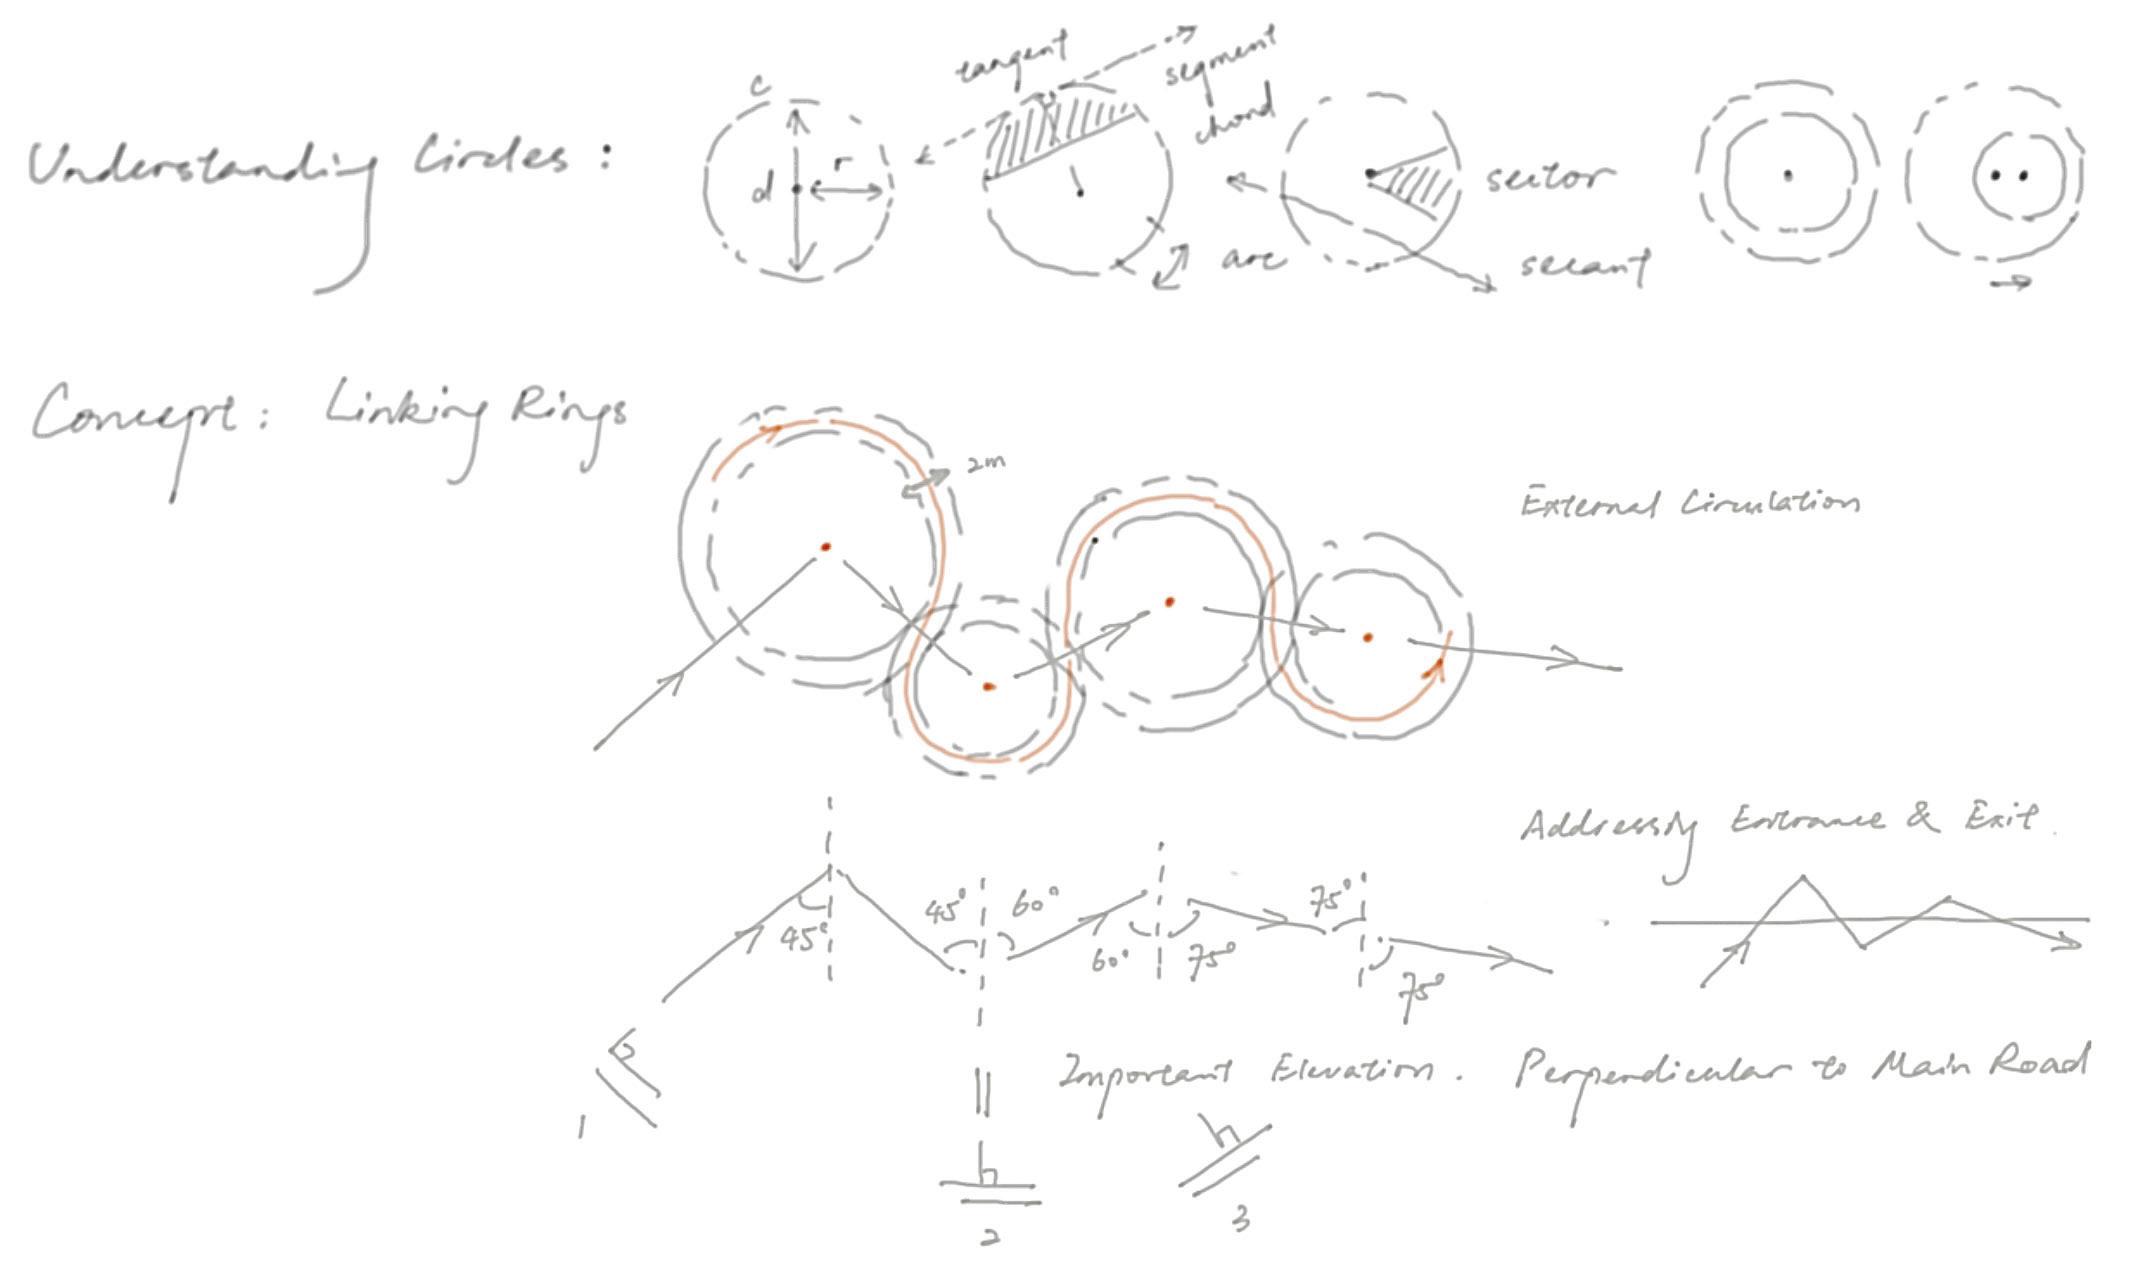 Understanding Circles :
c
d
r
tangent
segment
chord
arc
sector
secant
Concept : Linking Rings
2m
External Circulation
Addressing Entrance & Exit.
45°
45°
60°
60°
75°
75°
75°
Important Elevation. Perpendicular to Main Road
1
2
3